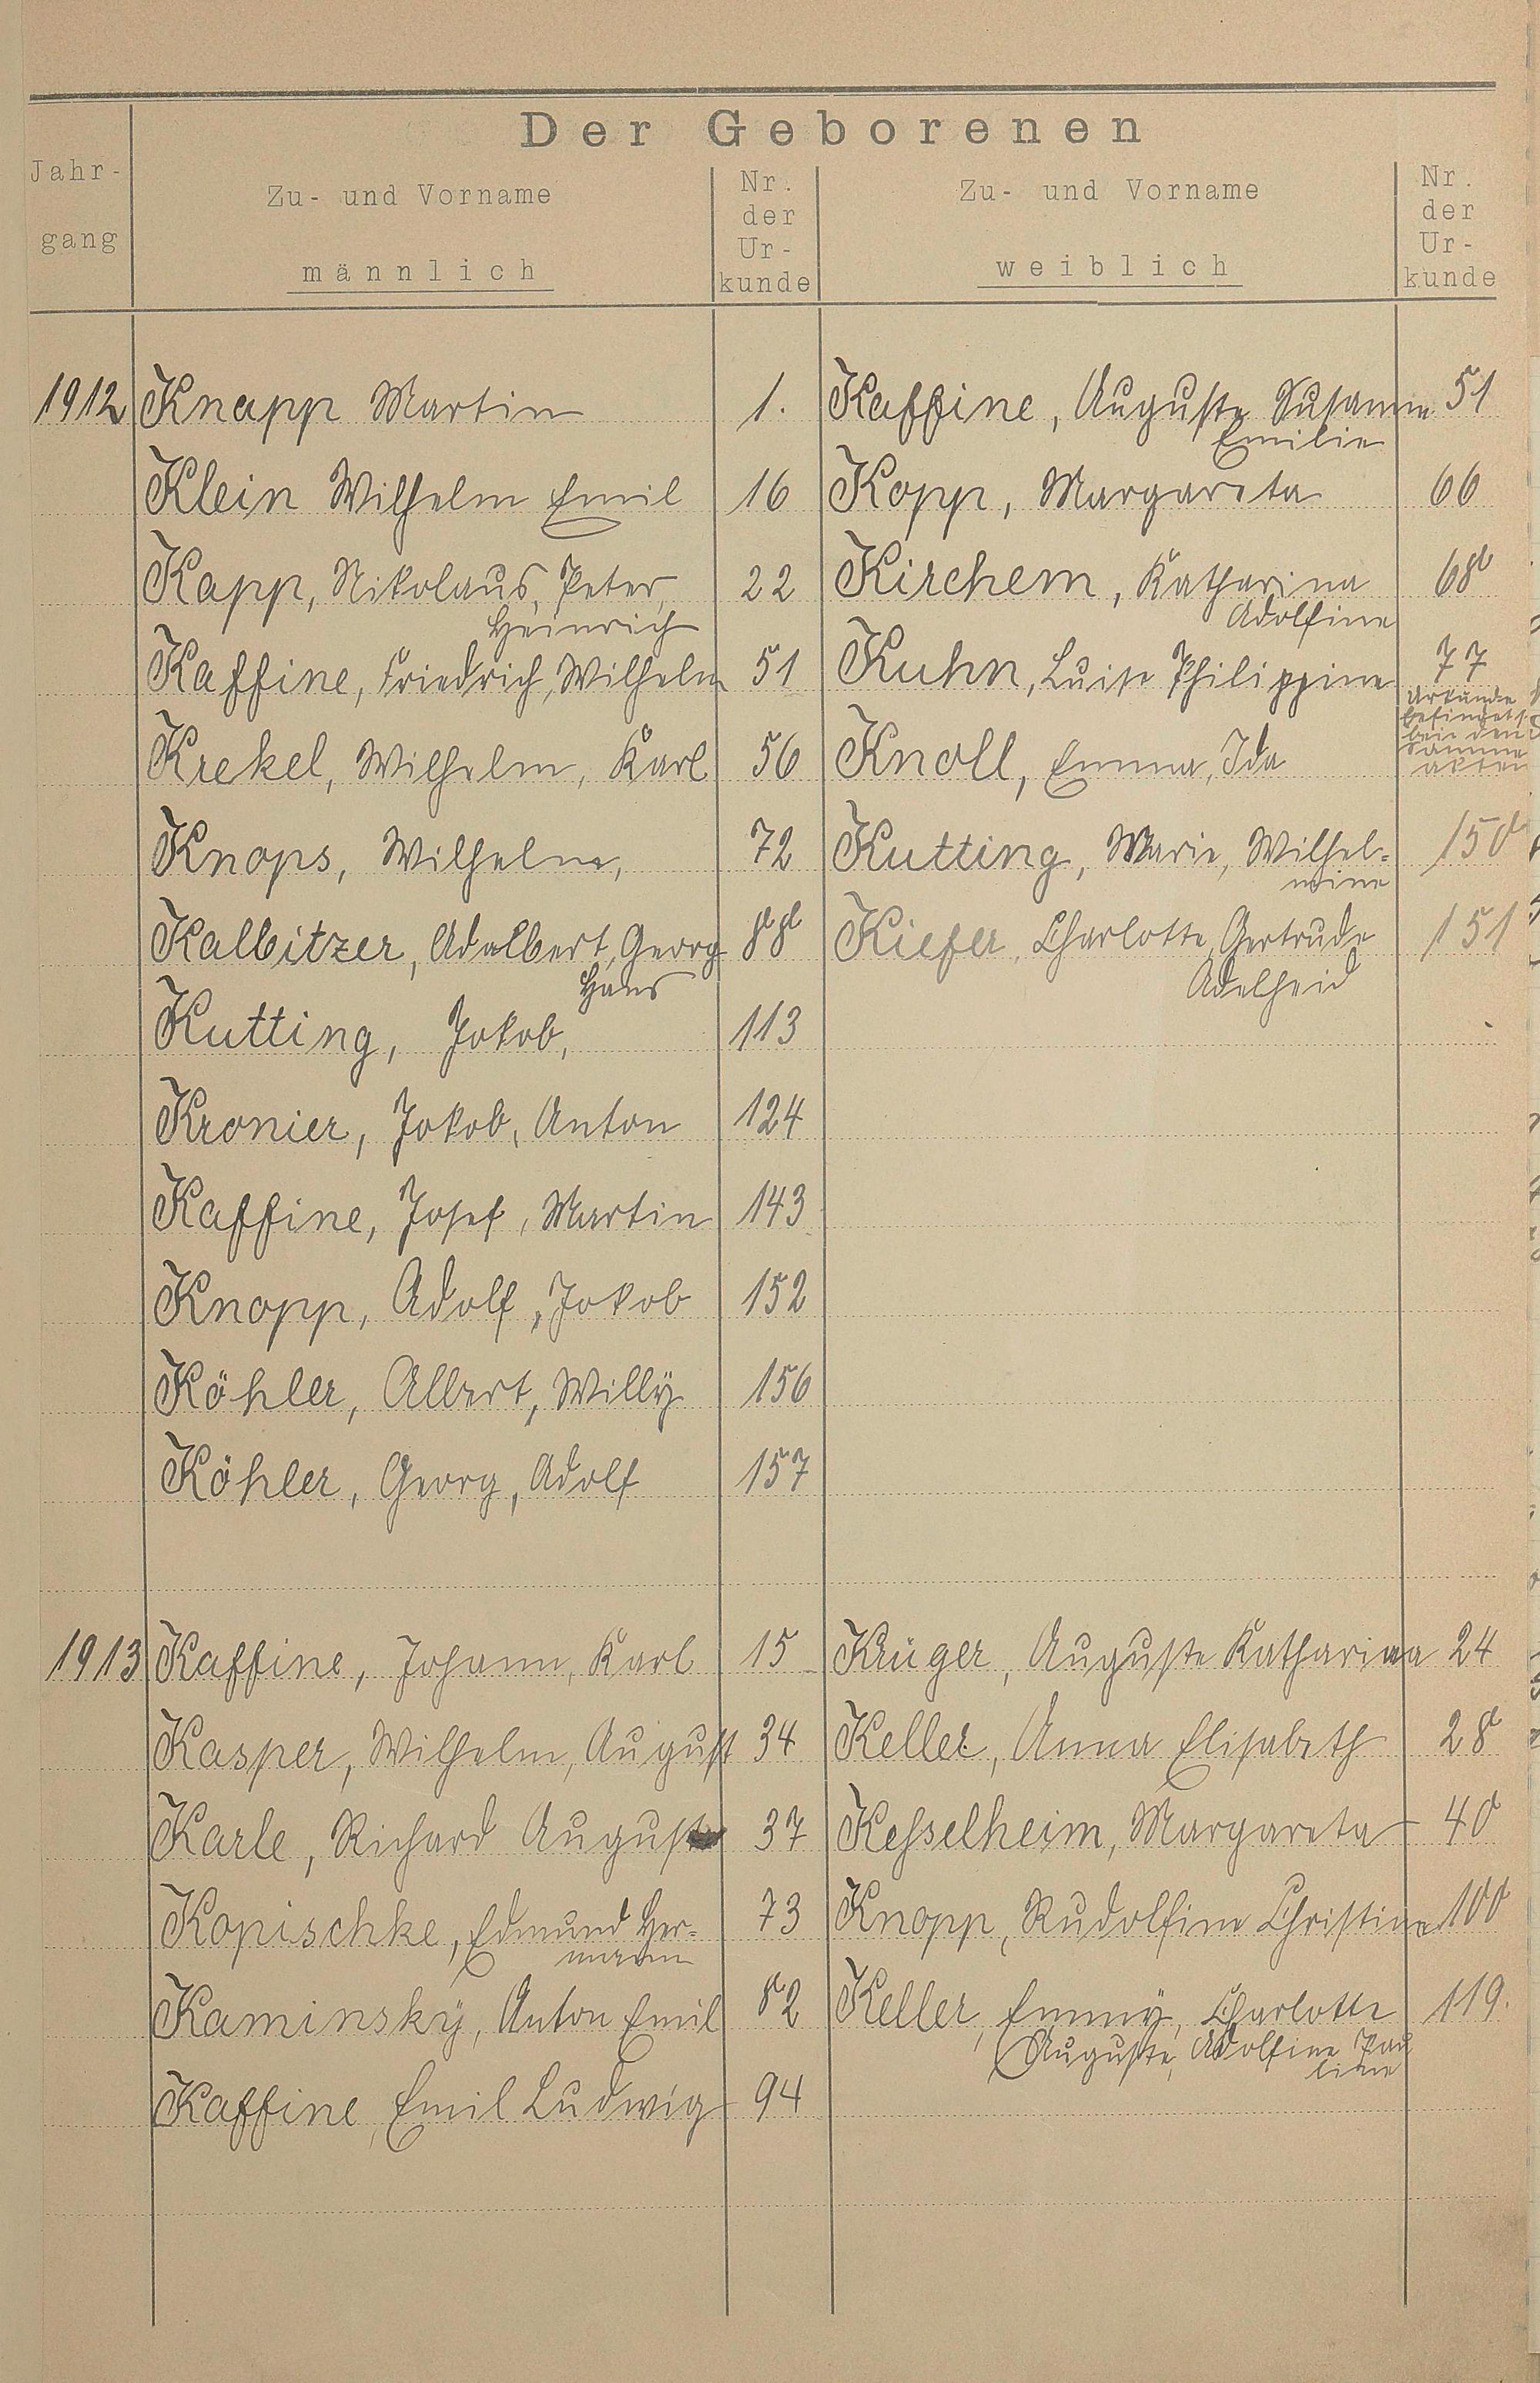 Der Geborenen
Jahr-
gang
Zu- und Vorname
männlich
Nr.
der
Ur-
kunde
Zu- und Vorname
weiblich
Nr.
der
Ur-
kunde
1912 Knapp Martin 1. Kaffine, Auguste Susanne 51
Emilie
Klein Wilhelm Emil 16 Kopp, Margareta 66
Kapp, Nikolaus, Peter, 22 Kirchem, Katharina 68
Heinrich Adolfine
Kaffine, Friedrich, Wilhelm 51 Kuhn, Luise Philippine 77
Krekel, Wilhelm, Karl 56 Knoll, Emma, Ida Urkunde
befindet s.
bei den
Samme
akten
Knops, Wilhelm, 72 Kutting, Marie, Wilhel-
mine 150
Kalbitzer, Adalbert, Georg 88 Kiefer, Charlotte, Gertrude 151
Hans Adelheid
Kutting, Jakob, 113
Kronier, Jakob, Anton 124
Kaffine, Josef, Martin 143
Knopp, Adolf, Jakob 152
Köhler, Albert, Willy 156
Köhler, Georg, Adolf 157
1913 Kaffine, Johann, Karl 15 Krüger, Auguste Katharina 24
Kasper, Wilhelm, August 34 Keller, Anna Elisabeth 28
Karle, Richard August 37 Kesselheim, Margareta 40
Kopischke, Edmund Her-
mann 73 Knopp, Rudolfine Christine 100
Kaminsky, Anton Emil 82 Keller, Emmy, Charlotte 119.
Auguste, Adolfine Pau
line
Kaffine, Emil Ludwig 94